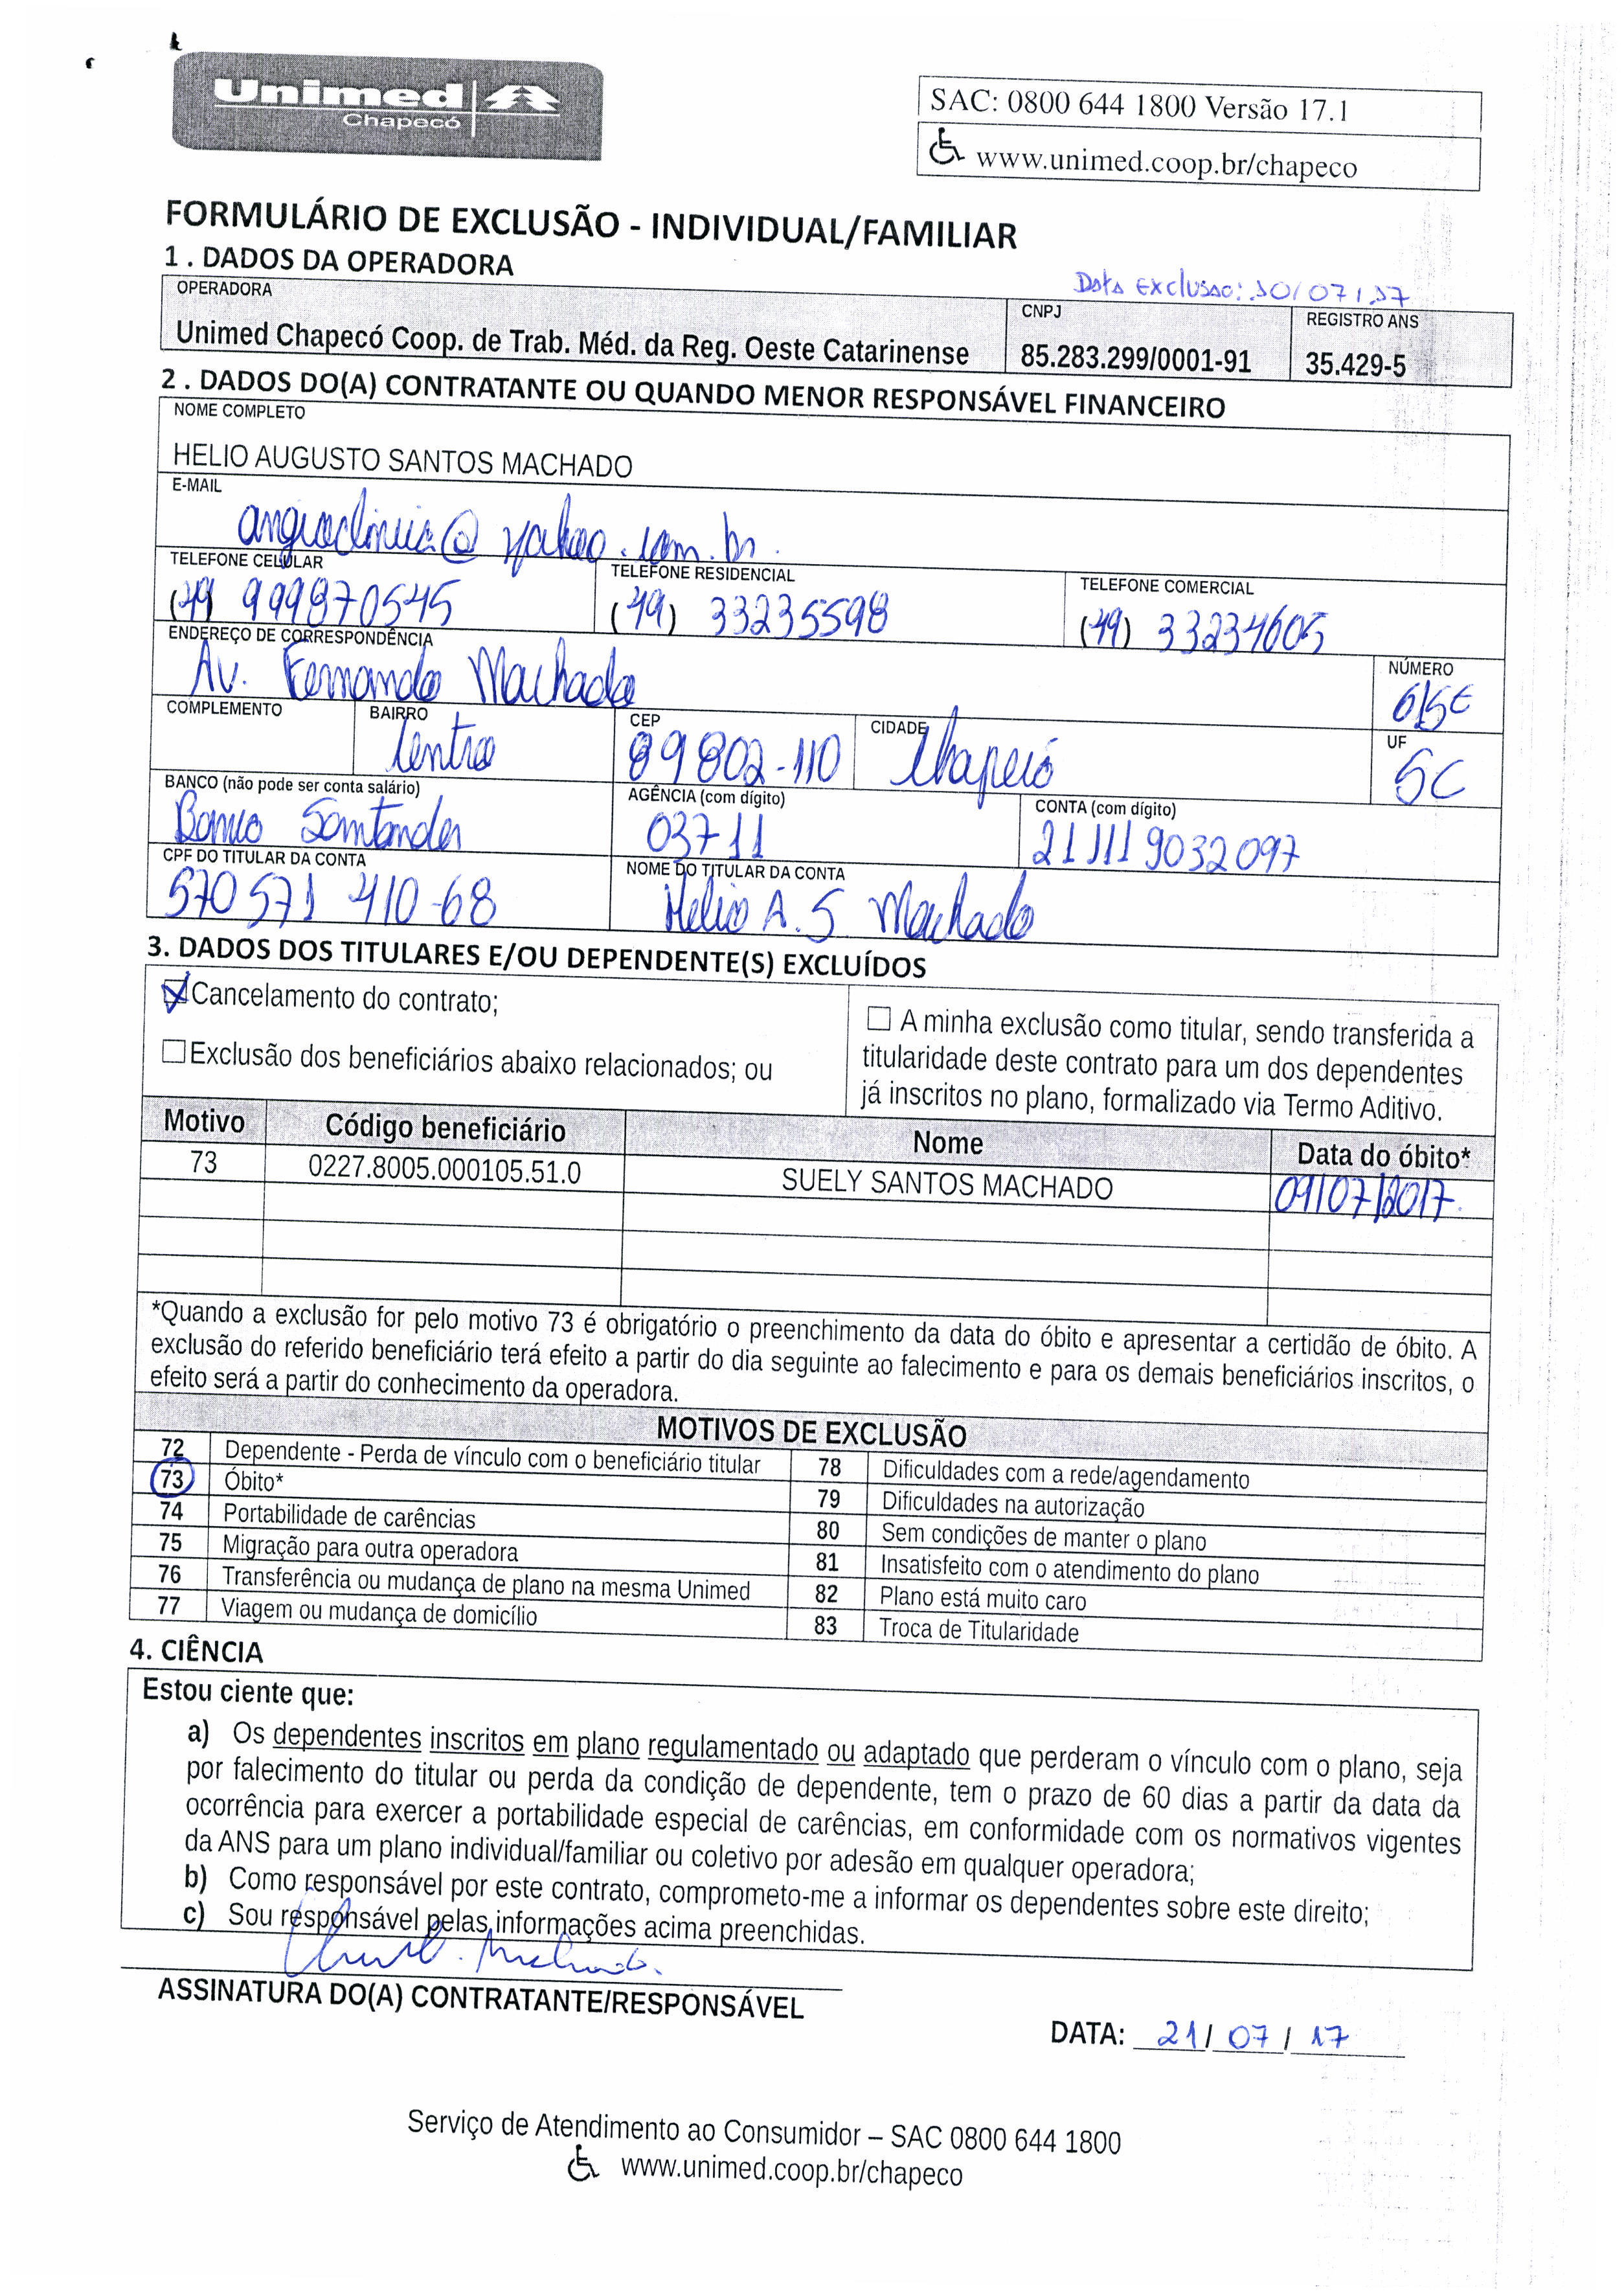 Unimed
Chapecó
SAC: 0800 644 1800 Versão 17.1
www.unimed.coop.br/chapeco
FORMULÁRIO DE EXCLUSÃO - INDIVIDUAL/FAMILIAR
1 . DADOS DA OPERADORA
Data Exclusao: 10/07/17
OPERADORA CNPJ REGISTRO ANS
Unimed Chapecó Coop. de Trab. Méd. da Reg. Oeste Catarinense 85.283.299/0001-91 35.429-5
2 . DADOS DO(A) CONTRATANTE OU QUANDO MENOR RESPONSÁVEL FINANCEIRO
NOME COMPLETO
HELIO AUGUSTO SANTOS MACHADO
E-MAIL
angioclinica@yahoo.com.br
TELEFONE CELULAR TELEFONE RESIDENCIAL TELEFONE COMERCIAL
(49) 999870545 (49) 33235598 (49) 33234605
ENDEREÇO DE CORRESPONDÊNCIA NÚMERO
Av. Fernando Machado 615E
COMPLEMENTO BAIRRO CEP CIDADE UF
Centro 89802-110 Chapecó SC
BANCO (não pode ser conta salário) AGÊNCIA (com dígito) CONTA (com dígito)
Banco Santander 03711 211119032097
CPF DO TITULAR DA CONTA NOME DO TITULAR DA CONTA
570 571 410-68 Helio A. S Machado
3. DADOS DOS TITULARES E/OU DEPENDENTE(S) EXCLUÍDOS
Cancelamento do contrato;
Exclusão dos beneficiários abaixo relacionados; ou
A minha exclusão como titular, sendo transferida a
titularidade deste contrato para um dos dependentes
já inscritos no plano, formalizado via Termo Aditivo.
Motivo Código beneficiário Nome Data do óbito*
73 0227.8005.000105.51.0 SUELY SANTOS MACHADO 09/07/2017.
*Quando a exclusão for pelo motivo 73 é obrigatório o preenchimento da data do óbito e apresentar a certidão de óbito. A
exclusão do referido beneficiário terá efeito a partir do dia seguinte ao falecimento e para os demais beneficiários inscritos, o
efeito será a partir do conhecimento da operadora.
MOTIVOS DE EXCLUSÃO
72 Dependente - Perda de vínculo com o beneficiário titular 78 Dificuldades com a rede/agendamento
73 Óbito* 79 Dificuldades na autorização
74 Portabilidade de carências 80 Sem condições de manter o plano
75 Migração para outra operadora 81 Insatisfeito com o atendimento do plano
76 Transferência ou mudança de plano na mesma Unimed 82 Plano está muito caro
77 Viagem ou mudança de domicílio 83 Troca de Titularidade
4. CIÊNCIA
Estou ciente que:
a) Os dependentes inscritos em plano regulamentado ou adaptado que perderam o vínculo com o plano, seja
por falecimento do titular ou perda da condição de dependente, tem o prazo de 60 dias a partir da data da
ocorrência para exercer a portabilidade especial de carências, em conformidade com os normativos vigentes
da ANS para um plano individual/familiar ou coletivo por adesão em qualquer operadora;
b) Como responsável por este contrato, comprometo-me a informar os dependentes sobre este direito;
c) Sou responsável pelas informações acima preenchidas.
Machado.
ASSINATURA DO(A) CONTRATANTE/RESPONSÁVEL
DATA: 21/07/17
Serviço de Atendimento ao Consumidor – SAC 0800 644 1800
www.unimed.coop.br/chapeco